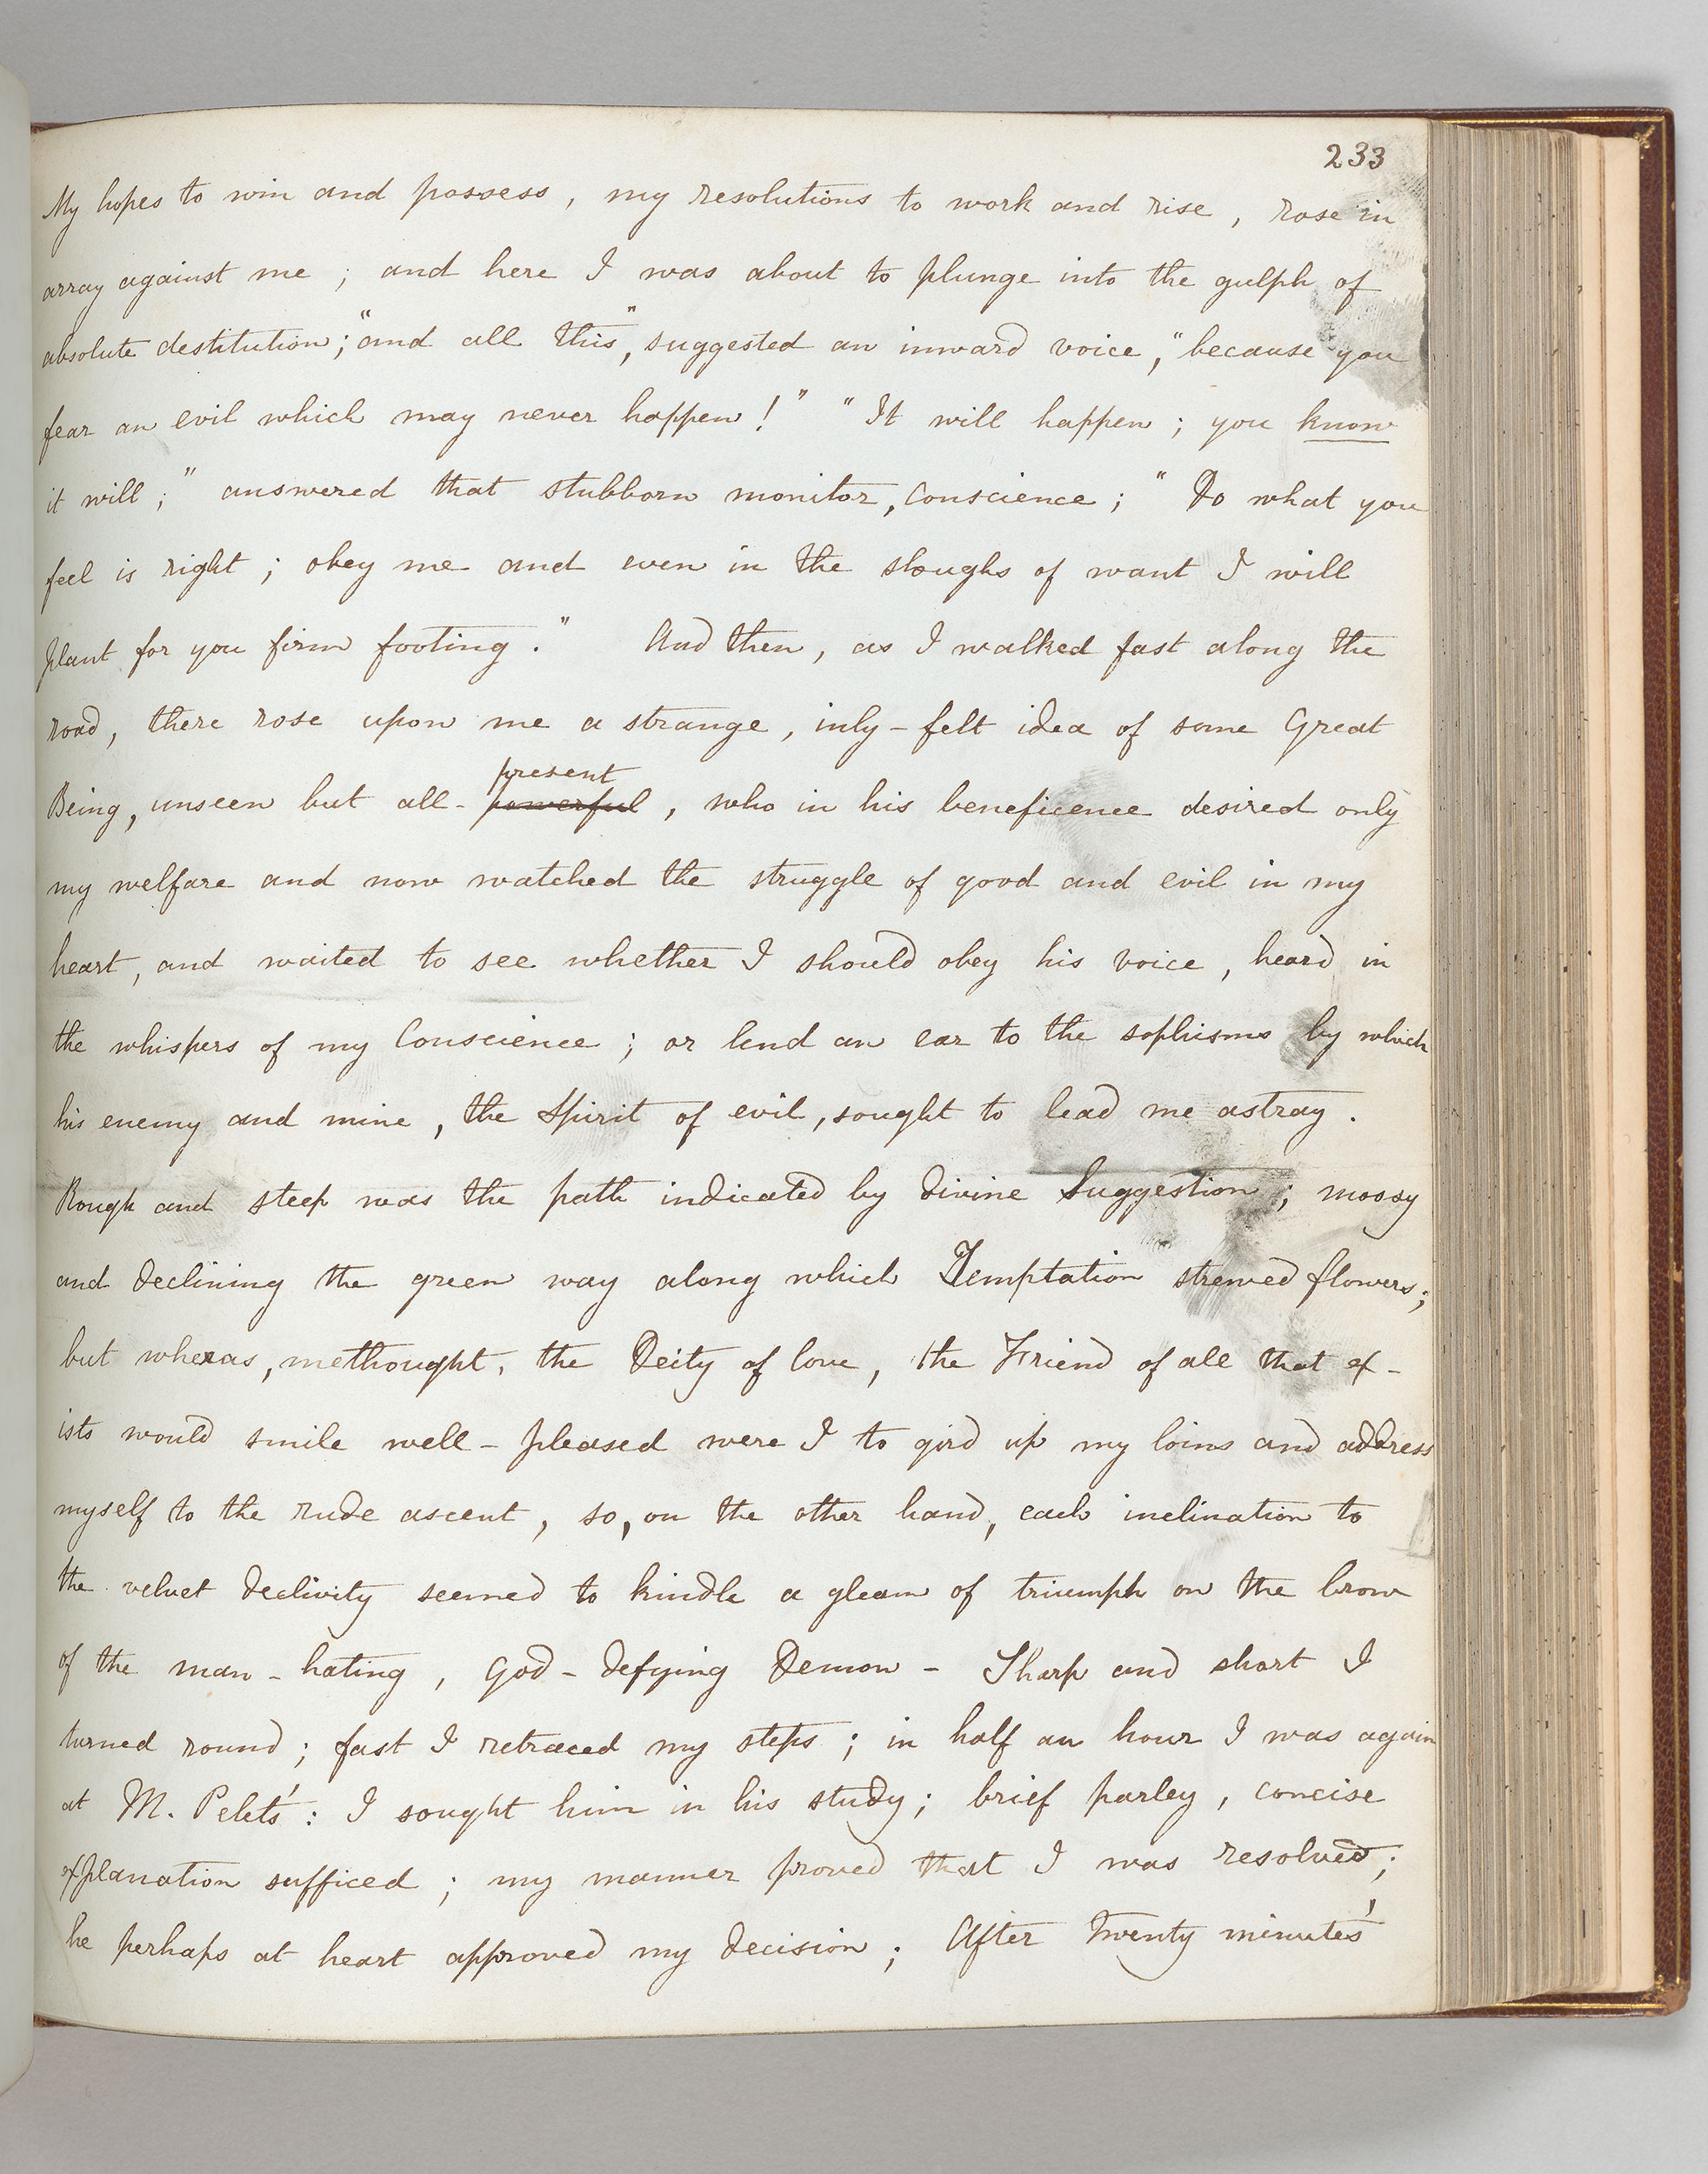 233
My hopes to win and possess, my resolutions to work and rise, rose in
array against me; and here I was about to plunge into the gulph of
absolute destitution; "and all this", suggested an inward voice, "because you
fear an evil which may never happen!" "It will happen; you know
it will;" answered that stubborn monitor, Conscience; "Do what you
feel is right; obey me and even in the sloughs of want I will
plant for you firm footing." And then, as I walked fast along the
road, there rose upon me a strange, inly-felt idea of some Great
present
Being, unseen but all-powerful, who in his beneficence desired only
my welfare and now watched the struggle of good and evil in my
heart, and waited to see whether I should obey his voice, heard in
the whispers of my Conscience; or lend an ear to the sophisms by which
his enemy and mine, the Spirit of evil, sought to lead me astray.
Rough and steep was the path indicated by divine Suggestion; mossy
and declining the green way along which Temptation strewed flowers;
but wheras, methought, the Deity of love, the Friend of all that ex-
ists would smile well-pleased were I to gird up my loins and address
myself to the rude ascent, so, on the other hand, each inclination to
the velvet declivity seemed to kindle a gleam of triumph on the brow
of the man-hating, God-defying Demon - Sharp and short I
turned round; fast I retraced my steps; in half an hour I was again
at M. Pelet's: I sought him in his study; brief parley, concise
explanation sufficed; my manner proved that I was resolved;
he perhaps at heart approved my decision; After twenty minutes'